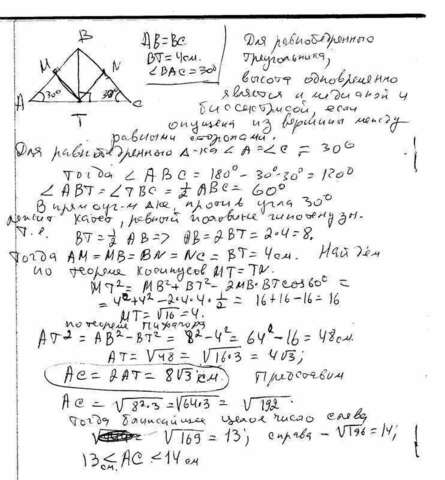 B
M N
A 30° 30° C
T
AB = BC
BT = 4см.
∠BAC = 30°
Для равнобедренного
треугольника,
высота одновременно
является и медианой и
биссектрисой, если
опущена из вершины между
равными сторонами.
Для равнобедренного Δ-ка ∠A = ∠C = 30°
Тогда ∠ABC = 180° - 30° - 30° = 120°
∠ABT = ∠TBC = 1/2 ABC = 60°
В прямоуг-м Δ-ке, против угла 30°
лежит катет, равный половине гипотенузы.
Т.е. BT = 1/2 AB => AB = 2BT = 2·4 = 8.
Тогда AM = MB = BN = NC = BT = 4см. Найдём
по теореме косинусов MT = TN.
MT² = MB² + BT² - 2MB·BT cos60° =
= 4² + 4² - 2·4·4·1/2 = 16 + 16 - 16 = 16
MT = √16 = 4.
по теореме Пифагора
AT² = AB² - BT² = 8² - 4² = 64² - 16 = 48 см.
AT = √48 = √16·3 = 4√3;
AC = 2AT = 8√3 см. Представим
AC = √8²·3 = √64·3 = √192.
Тогда ближайшее целое число слева
√169 = 13; справа - √196 = 14;
13 см. < AC < 14 см